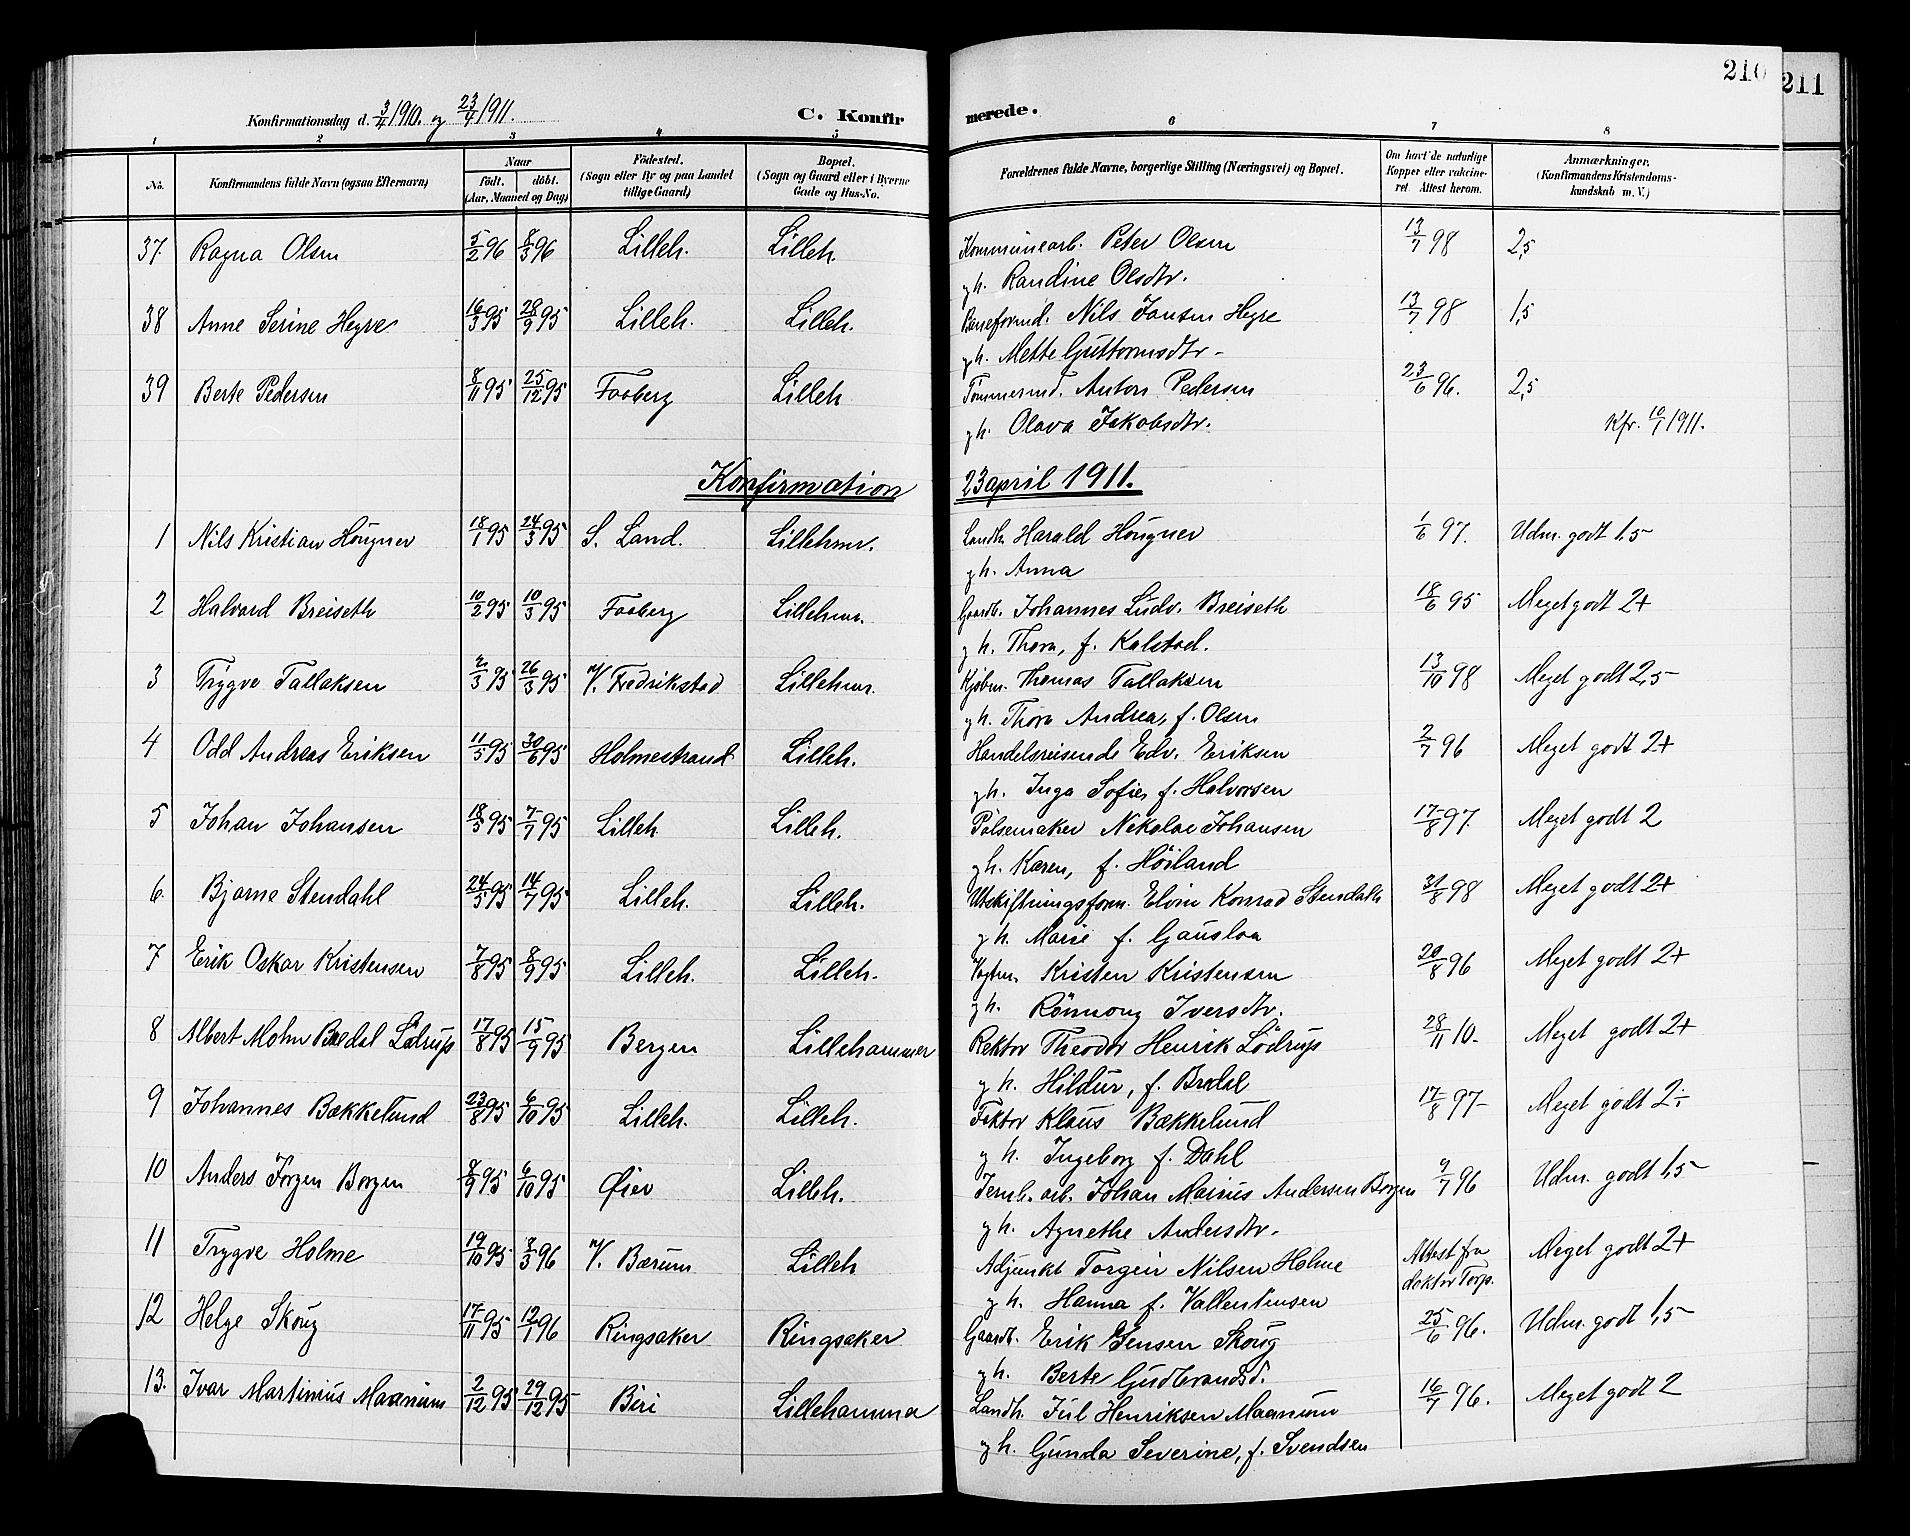 210
211
Konfirmationsdag d. 3/4 1910. og 23/4 1911.
C. Konfirmerede.
1 2 3 4 5 6 7 8
No.
Konfirmandens fulde Navn (ogsaa Efternavn)
Naar
født. døbt.
(Aar, Maaned og Dag)
Födested.
(Sogn eller By og paa Landet
tillige Gaard)
Bopæl.
(Sogn og Gaard eller i Byerne
Gade og Hus-No.
Forældrenes fulde Navne, borgerlige Stilling (Næringsvei) og Bopæl.
Om havt de naturlige
Kopper eller vakcine-
ret. Attest herom.
Anmærkninger.
(Konfirmandens Kristendoms-
kundskab m. V.)
37. Ragna Olsen 5/2 96 8/3 96 Lilleh. Lilleh. Kommunearb. Peter Olsen 13/7 98 2,5
gh. Randine Olsdtr.
38 Anne Serine Hegre 16/3 95 28/9 95 Lilleh. Lilleh. Baneformd. Nils Jansen Hegre 13/7 98 1,5
gh. Mette Guttormsdtr.
39 Berte Pedersen 8/11 95 25/12 95 Faaberg Lilleh Tömmermd. Anton Pedersen 23/6 96. 2,5
gh. Olava Jakobsdtr. Kfr. 10/1 1911.
Konfirmation 23 april 1911.
1 Nils Kristian Hougner 18/1 95 24/3 95 S. Land. Lillehmr. Landh. Harald Hougner 1/6 97. Udm. godt 1.5
gh. Anna
2 Halvard Breiseth 10/2 95 10/3 95 Faaberg Lillehmr. Gaardb. Johannes Ludv. Breiseth 18/6 95 Meget godt 2+
gh. Thora, f. Kalstad.
3 Trygve Tallaksen 2/3 95 26/3 95 V. Fredrikstad Lillehmr. Kjøbm. Thomas Tallaksen 13/10 98 Meget godt 2,5
gh. Thora Andrea, f. Olsen
4 Odd Andreas Eriksen 11/5 95 30/6 95 Holmestrand Lilleh. Handelsreisende Edv. Eriksen 2/7 96 Meget godt 2+
gh. Inga Sofie, f. Halvorsen
5 Johan Johansen 18/5 95 7/7 95 Lilleh Lilleh. Pölsemaker Nikolai Johansen 17/8 97. Meget godt 2
gh. Karen, f. Höiland
6. Bjarne Stendahl 24/5 95 14/7 95 Lilleh. Lilleh. Utskiftningsform. Elvin Konrad Stendahl 31/8 98 Meget godt 2+
gh. Marie f. Gausloa
7 Erik Oskar Kristensen 7/8 95 8/9 95 Lilleh. Lilleh. Vogtm. Kristen Kristensen 20/8 96 Meget godt 2+
gh. Rönnoug Iversdtr.
8 Albert Mohn Brodal Lödrup 17/8 95 15/9 95 Bergen Lillehammer Rektor Theodor Henrik Lödrup 28/11 10. Meget godt 2+
gh. Hildur, f. Brodal
9 Johannes Bækkelund 23/8 95 6/10 95 Lilleh. Lilleh. Faktor Klaus Bækkelund 17/8 97- Meget godt 2÷
gh. Ingeborg f. Dahl
10 Anders Jörgen Borgen 8/9 95 6/10 95 Øier Lilleh. Jernb. arb. Johan Marius Andersen Borgen 9/7 96 Udm. godt 1,5
gh. Agnethe Andersdtr.
11 Trygve Holme 19/10 95 8/3 96 V. Bærum Lilleh Adjunkt Torgeir Nilsen Holme Attest fra Meget godt 2+
gh. Hanna f. Vallentinsen doktor Torp.
12 Helge Skoug 17/11 95 12/1 96 Ringsaker Ringsaker Gaardb. Erik Jensen Skoug 25/6 96. Udm. godt 1,5
gh. Berte Gudbrandsd.
13. Ivar Martinius Maanum 2/12 95 29/12 95 Biri Lillehamma Landh. Jul Henriksen Maanum 16/7 96. Meget godt 2
gh. Gunda Severine, f. Svendsen